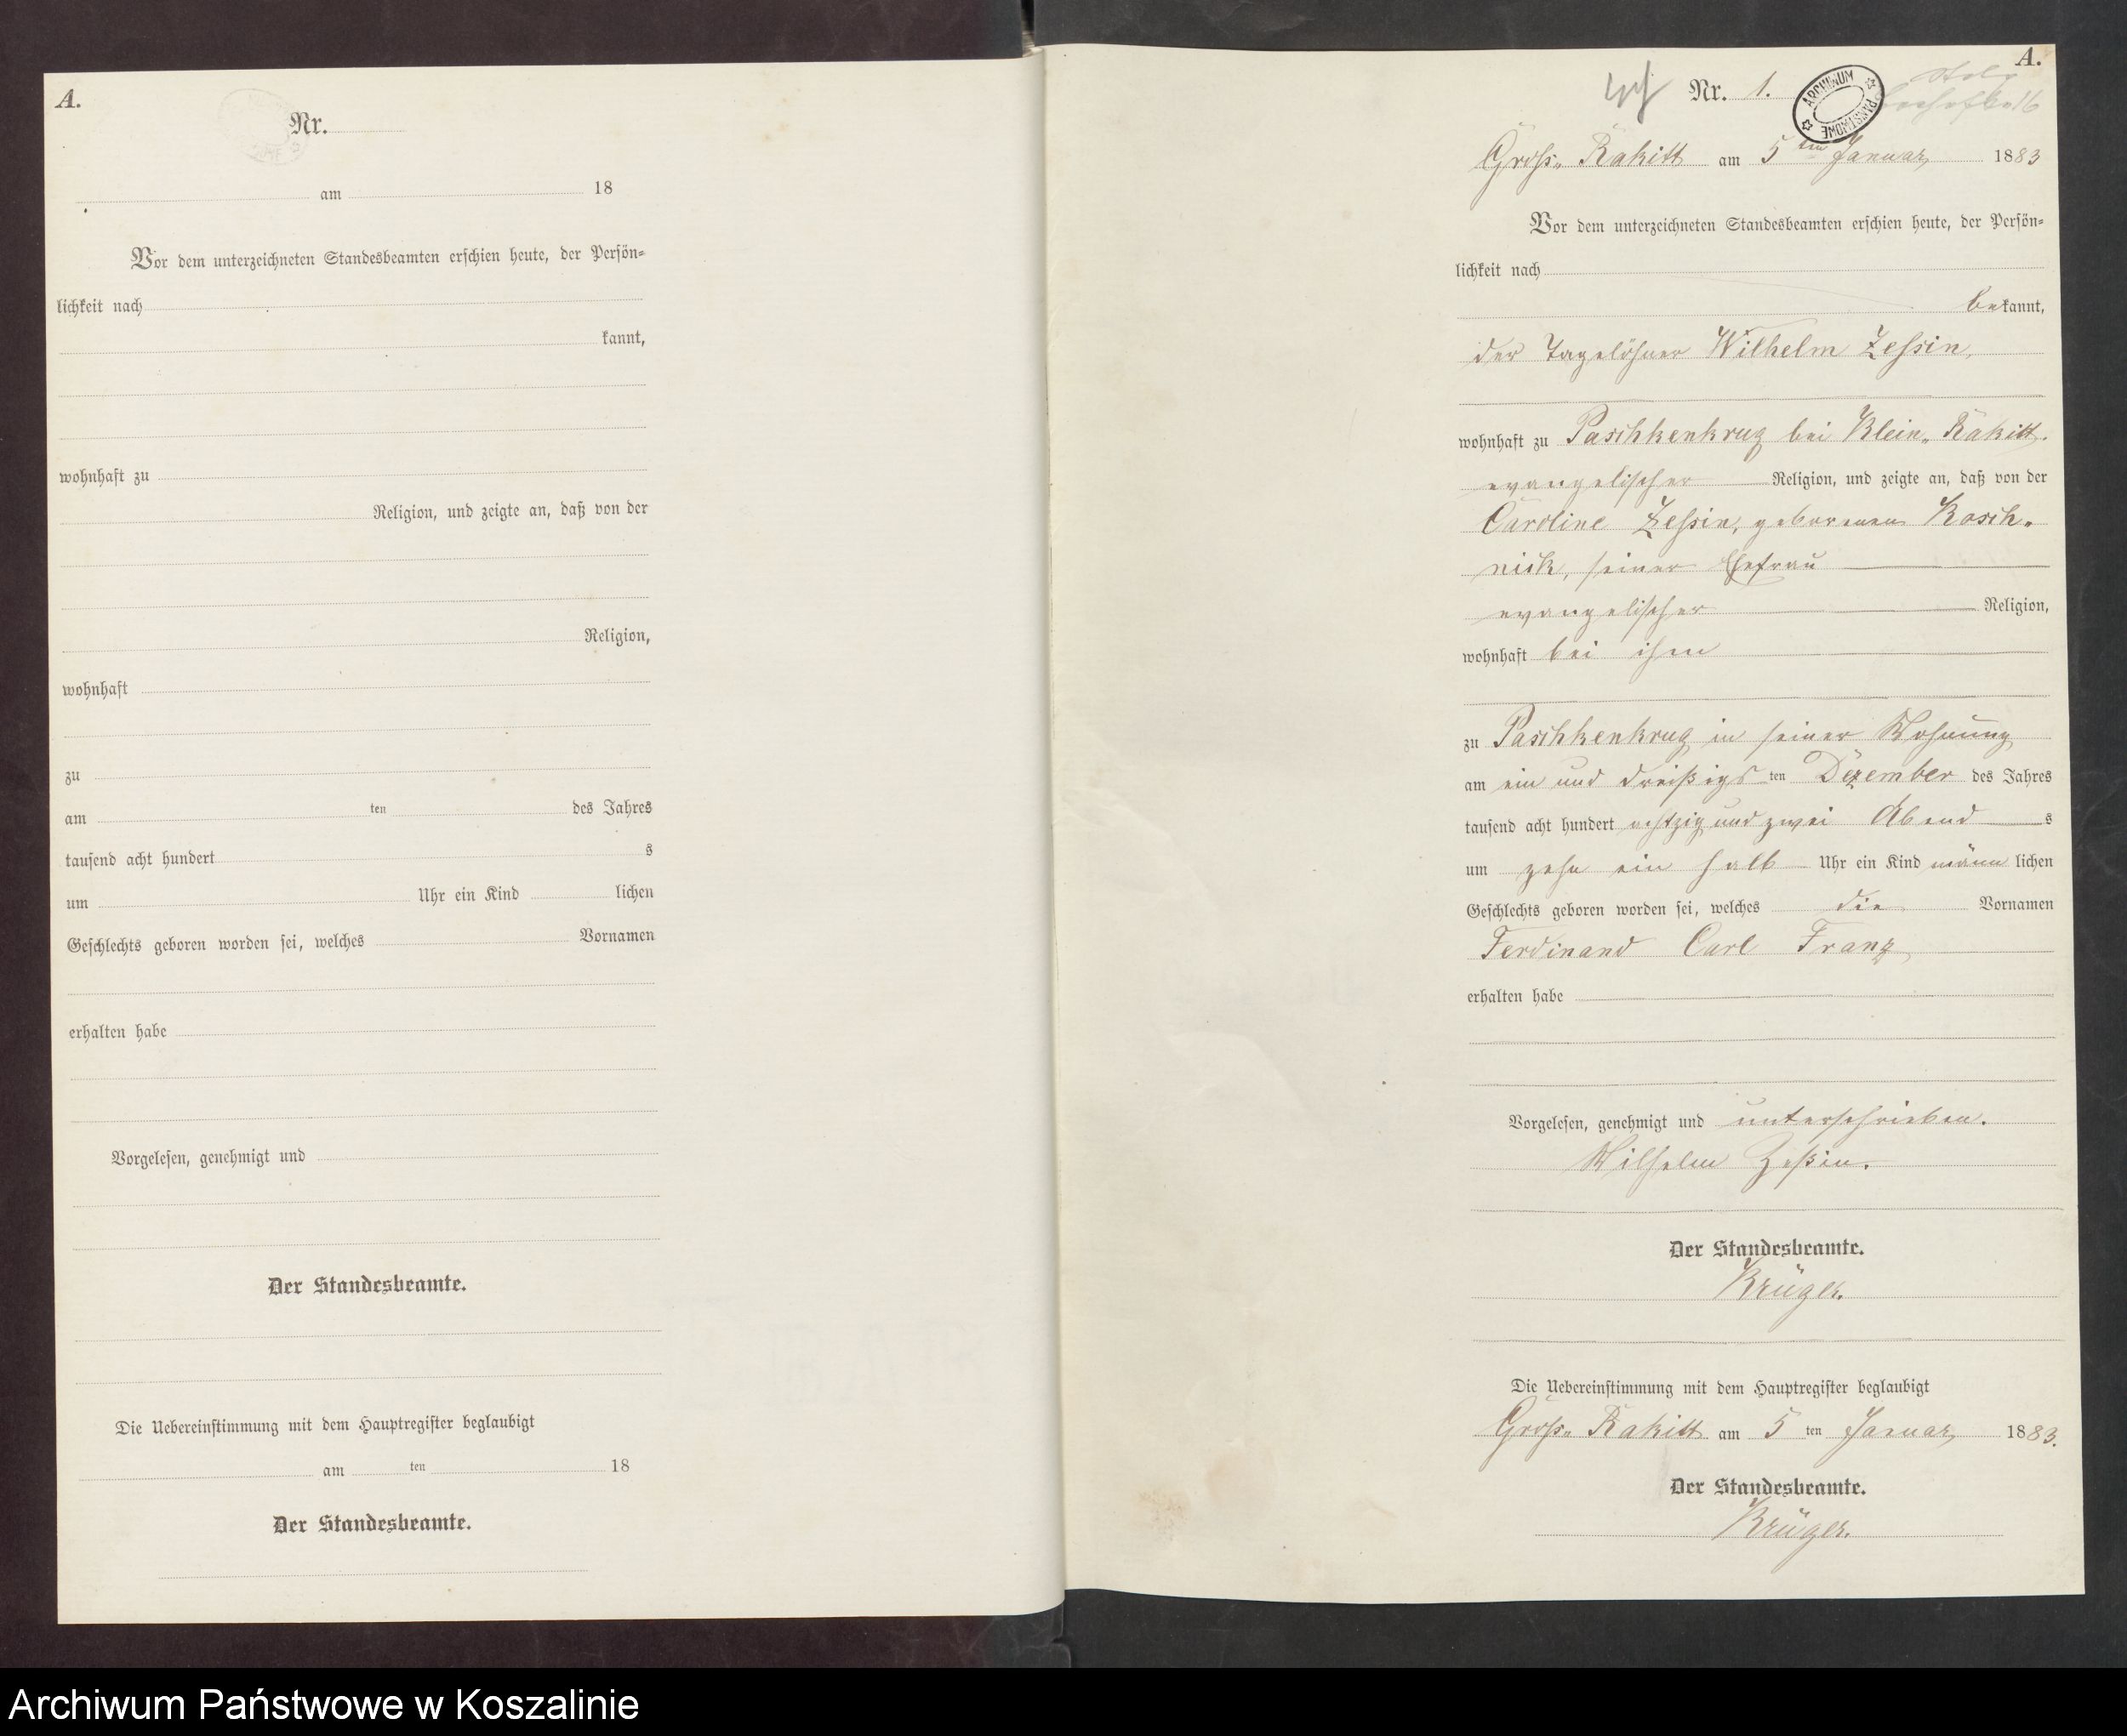 A.
Nr.
am 18
Vor dem unterzeichneten Standesbeamten erschien heute, der Persön-
lichkeit nach
kannt,
wohnhaft zu
Religion, und zeigte an, daß von der
Religion,
wohnhaft
zu
am ten des Jahres
tausend acht hundert s
um Uhr ein Kind lichen
Geschlechts geboren worden sei, welches Vornamen
erhalten habe
Vorgelesen, genehmigt und
Der Standesbeamte.
Die Uebereinstimmung mit dem Hauptregister beglaubigt
am ten 18
Der Standesbeamte.
A.
Nr. 1.
ARCHIWUM PAŃSTWOWE
Gross- Rakitt am 5ten Januar 1883
Vor dem unterzeichneten Standesbeamten erschien heute, der Persön-
lichkeit nach
bekannt,
der Tagelöhner Wilhelm Zessin,
wohnhaft zu Paschkenkrug bei Klein- Rakitt.
evangelischer Religion, und zeigte an, daß von der
Caroline Zessin, geborenen Kosch-
nick, seiner Ehefrau
evangelischer Religion,
wohnhaft bei ihm
zu Paschkenkrug in seiner Wohnung
am ein und dreißigs ten Dezember des Jahres
tausend acht hundert achtzig und zwei Abend s
um zehn ein halb Uhr ein Kind männ lichen
Geschlechts geboren worden sei, welches die Vornamen
Ferdinand Carl Franz
erhalten habe
Vorgelesen, genehmigt und unterschrieben.
Wilhelm Zeßin.
Der Standesbeamte.
Krüger.
Die Uebereinstimmung mit dem Hauptregister beglaubigt
Gross- Rakitt am 5 ten Januar 1883.
Der Standesbeamte.
Krüger.
Archiwum Państwowe w Koszalinie